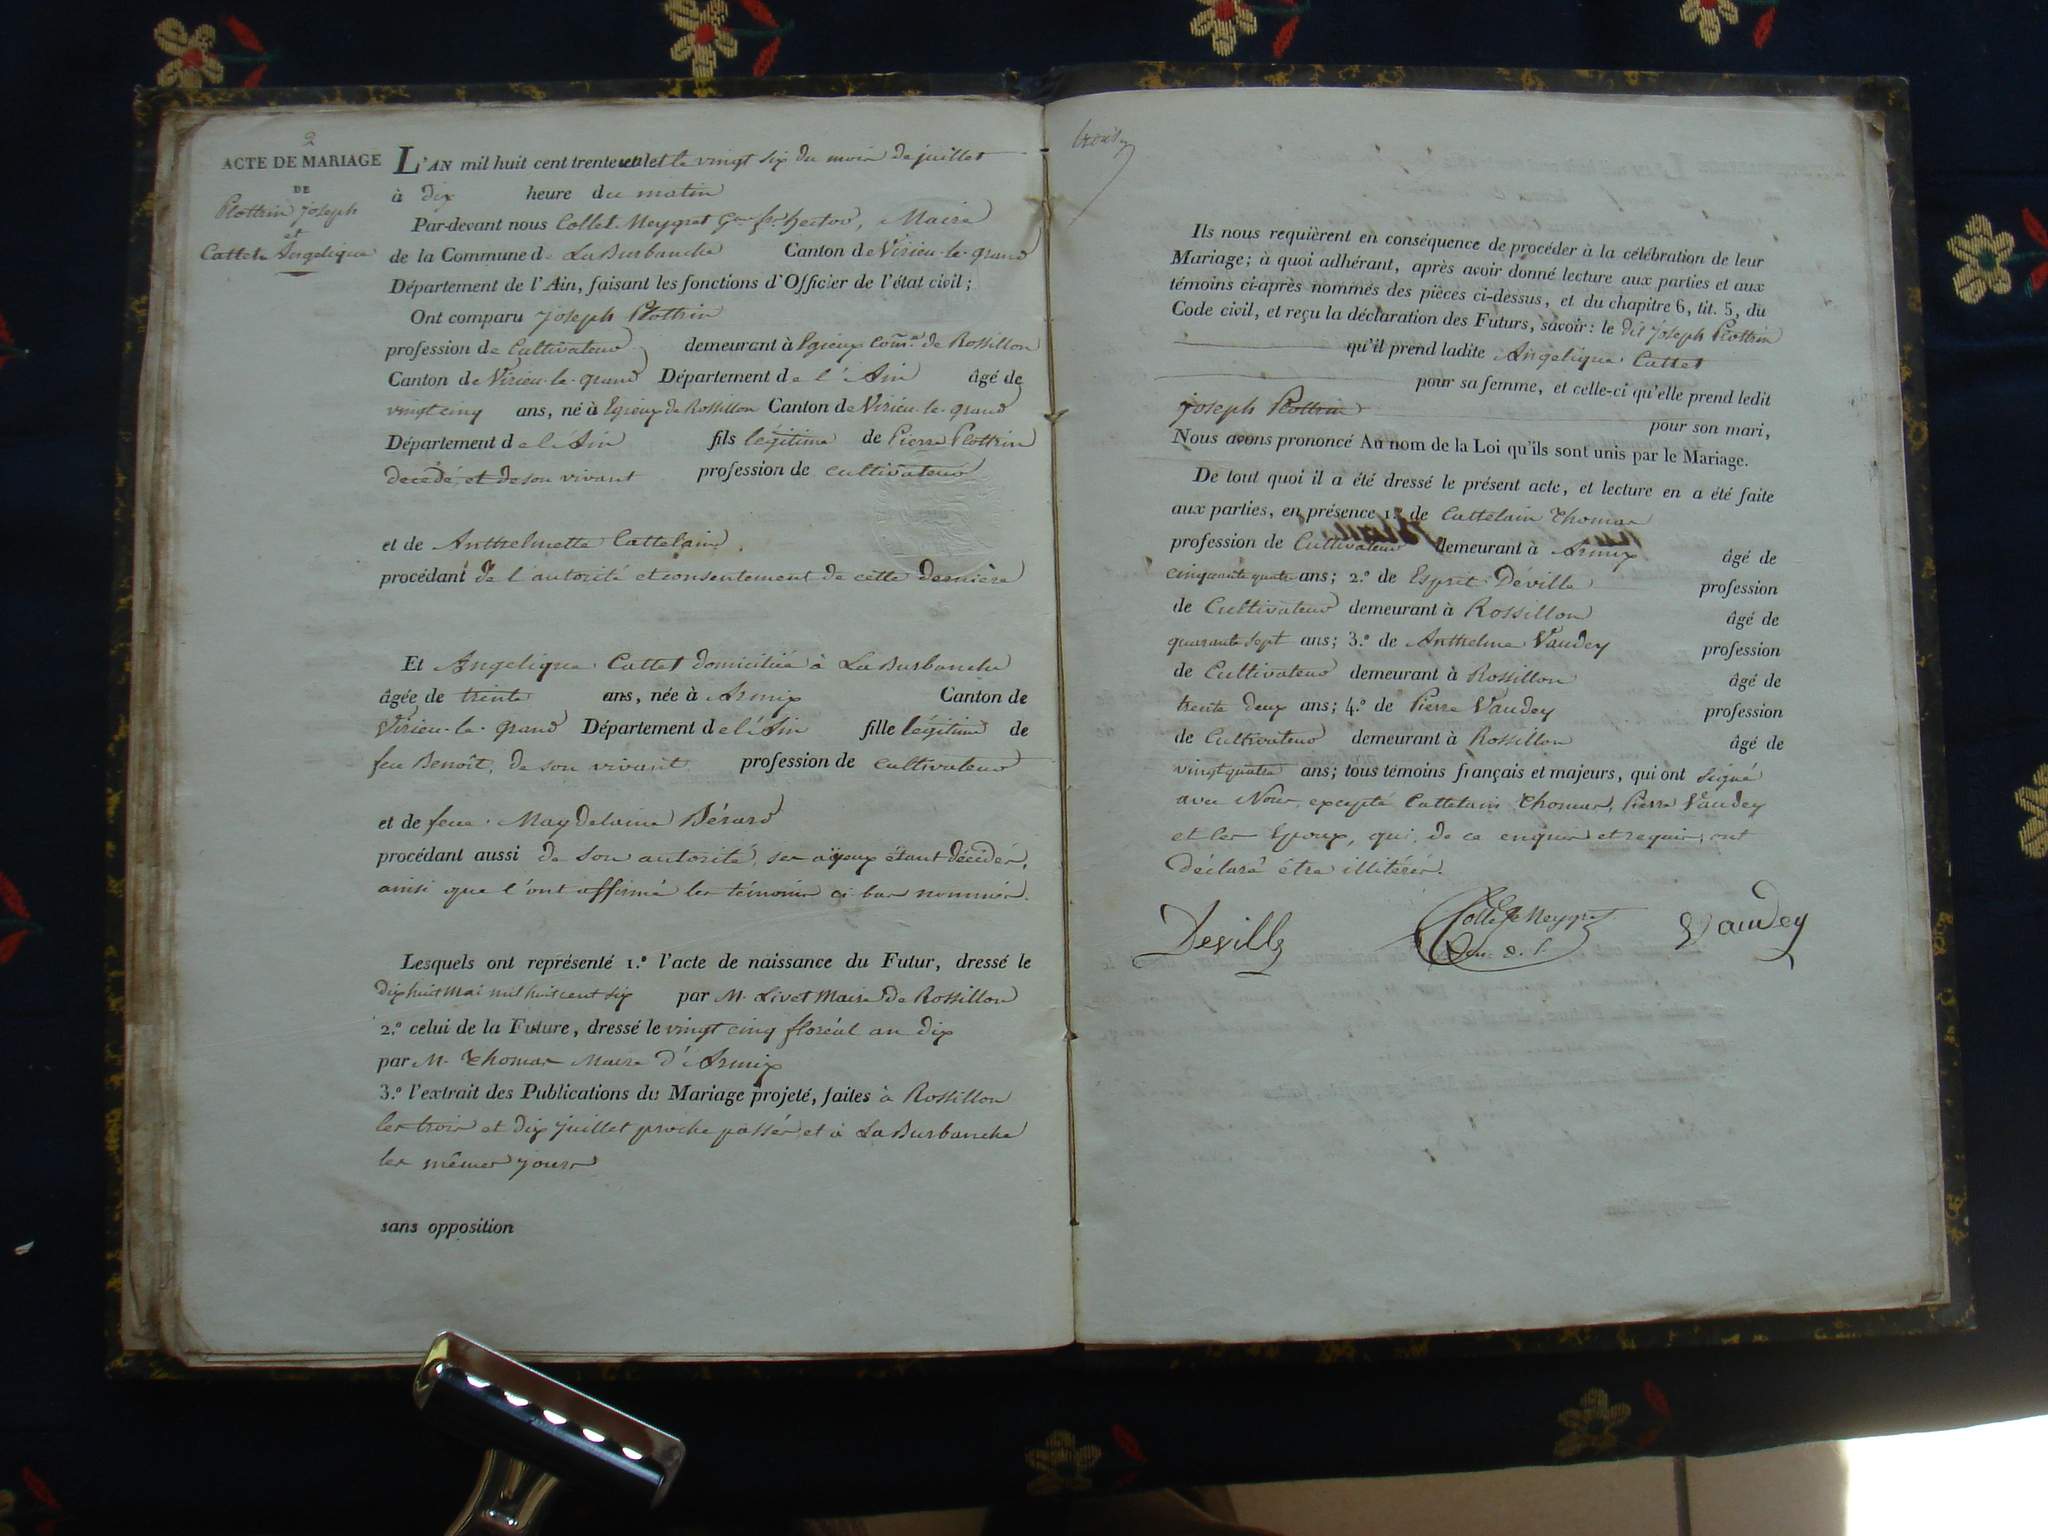 2
ACTE DE MARIAGE
DE
Plottrin Joseph
et
Cattet Angelique
L'AN mil huit cent trente un et le vingt six du mois de juillet
à dix heure du matin
Par-devant nous Collet-Meygret fr. hector, Maire
de la Commune de La Burbanche Canton de Virieu-le-grand
Département de l'Ain, faisant les fonctions d'Officier de l'état civil;
Ont comparu Joseph Plottrin
profession de Cultivateur demeurant à Egieux Comne de Rossillon
Canton de Virieu-le-grand Département de l'Ain âgé de
vingt cinq ans, né à Egieux de Rossillon Canton de Virieu-le-grand
Département de l'Ain fils légitime de Pierre Plottrin
decedé, et de son vivant profession de cultivateur
et de Anthelmette Cattelain,
procédant de l'autorité et consentement de cette dernière
Et Angelique Cattet domiciliée à La Burbanche
âgée de trente ans, née à Armix Canton de
Virieu-le-grand Département de l'Ain fille légitime de
feu Benoît, de son vivant profession de cultivateur
et de feue Maydelaine Bérard
procédant aussi de son autorité, ses ayeux étant décédés,
ainsi que l'ont affirmé les témoins ci bas nommés.
Lesquels ont représenté 1.º l'acte de naissance du Futur, dressé le
dix huit mai mil huit cent six par M. Livet Maire de Rossillon
2.º celui de la Future, dressé le vingt cinq floréal an dix
par M. Thomas Maire d'Armix
3.º l'extrait des Publications du Mariage projeté, faites à Rossillon
les trois et dix juillet proche passés, et à La Burbanche
les mêmes jours
sans opposition
Ils nous requièrent en conséquence de procéder à la célébration de leur
Mariage; à quoi adhérant, après avoir donné lecture aux parties et aux
témoins ci-après nommés des pièces ci-dessus, et du chapitre 6, tit. 5, du
Code civil, et reçu la déclaration des Futurs, savoir: le dit Joseph Plottrin
qu'il prend ladite Angelique Cattet
pour sa femme, et celle-ci qu'elle prend ledit
Joseph Plottrin
pour son mari,
Nous avons prononcé Au nom de la Loi qu'ils sont unis par le Mariage.
De tout quoi il a été dressé le présent acte, et lecture en a été faite
aux parties, en présence 1.º de Cattelain Thomas
profession de Cultivateur demeurant à Armix âgé de
cinquante quatre ans; 2.º de Esprit Déville profession
de Cultivateur demeurant à Rossillon âgé de
quarante sept ans; 3.º de Anthelme Vaudey profession
de Cultivateur demeurant à Rossillon âgé de
trente deux ans; 4.º de Pierre Vaudey profession
de Cultivateur demeurant à Rossillon âgé de
vingt quatre ans; tous témoins français et majeurs, qui ont signé
avec Nous, excepté Cattelain Thomas, Pierre Vaudey
et les Epoux, qui, de ce enquis et requis, ont
déclaré être illitérés.
Deville Collet Meygret Vaudey